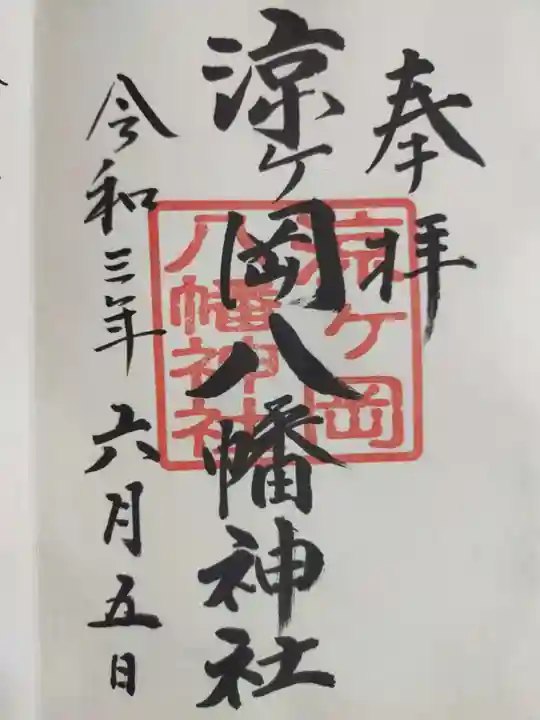 奉拝
涼ヶ岡八幡神社
令和三年六月五日
涼ヶ岡
八幡神社